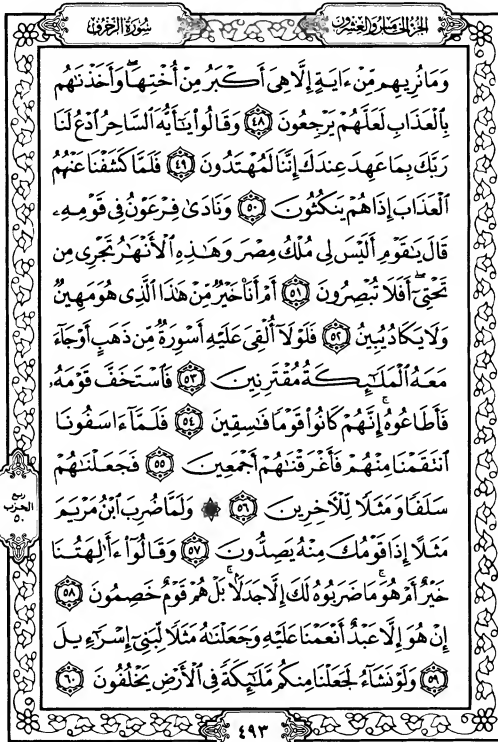 الجزء الخامس والعشرون
سورة الزخرف
وَمَا نُرِيهِم مِّنْ ءَايَةٍ إِلَّا هِىَ أَكْبَرُ مِنْ أُخْتِهَا وَأَخَذْنَٰهُم
بِٱلْعَذَابِ لَعَلَّهُمْ يَرْجِعُونَ ٤٨ وَقَالُوا۟ يَٰٓأَيُّهَ ٱلسَّاحِرُ ٱدْعُ لَنَا
رَبَّكَ بِمَا عَهِدَ عِندَكَ إِنَّنَا لَمُهْتَدُونَ ٤٩ فَلَمَّا كَشَفْنَا عَنْهُمُ
ٱلْعَذَابَ إِذَا هُمْ يَنكُثُونَ ٥٠ وَنَادَىٰ فِرْعَوْنُ فِى قَوْمِهِۦ
قَالَ يَٰقَوْمِ أَلَيْسَ لِى مُلْكُ مِصْرَ وَهَٰذِهِ ٱلْأَنْهَٰرُ تَجْرِى مِن
تَحْتِىٓ أَفَلَا تُبْصِرُونَ ٥١ أَمْ أَنَا۠ خَيْرٌ مِّنْ هَٰذَا ٱلَّذِى هُوَ مَهِينٌ
وَلَا يَكَادُ يُبِينُ ٥٢ فَلَوْلَآ أُلْقِىَ عَلَيْهِ أَسْوِرَةٌ مِّن ذَهَبٍ أَوْ جَآءَ
مَعَهُ ٱلْمَلَٰٓئِكَةُ مُقْتَرِنِينَ ٥٣ فَٱسْتَخَفَّ قَوْمَهُۥ
فَأَطَاعُوهُ إِنَّهُمْ كَانُوا۟ قَوْمًا فَٰسِقِينَ ٥٤ فَلَمَّآ ءَاسَفُونَا
ٱنتَقَمْنَا مِنْهُمْ فَأَغْرَقْنَٰهُمْ أَجْمَعِينَ ٥٥ فَجَعَلْنَٰهُمْ
سَلَفًا وَمَثَلًا لِّلْءَاخِرِينَ ٥٦ ۞ وَلَمَّا ضُرِبَ ٱبْنُ مَرْيَمَ
مَثَلًا إِذَا قَوْمُكَ مِنْهُ يَصِدُّونَ ٥٧ وَقَالُوٓا۟ ءَأَٰلِهَتُنَا
خَيْرٌ أَمْ هُوَ مَا ضَرَبُوهُ لَكَ إِلَّا جَدَلًۢا بَلْ هُمْ قَوْمٌ خَصِمُونَ ٥٨
إِنْ هُوَ إِلَّا عَبْدٌ أَنْعَمْنَا عَلَيْهِ وَجَعَلْنَٰهُ مَثَلًا لِّبَنِىٓ إِسْرَٰٓءِيلَ
٥٩ وَلَوْ نَشَآءُ لَجَعَلْنَا مِنكُم مَّلَٰٓئِكَةً فِى ٱلْأَرْضِ يَخْلُفُونَ ٦٠
ربع
الحزب
٥٠
٤٩٣